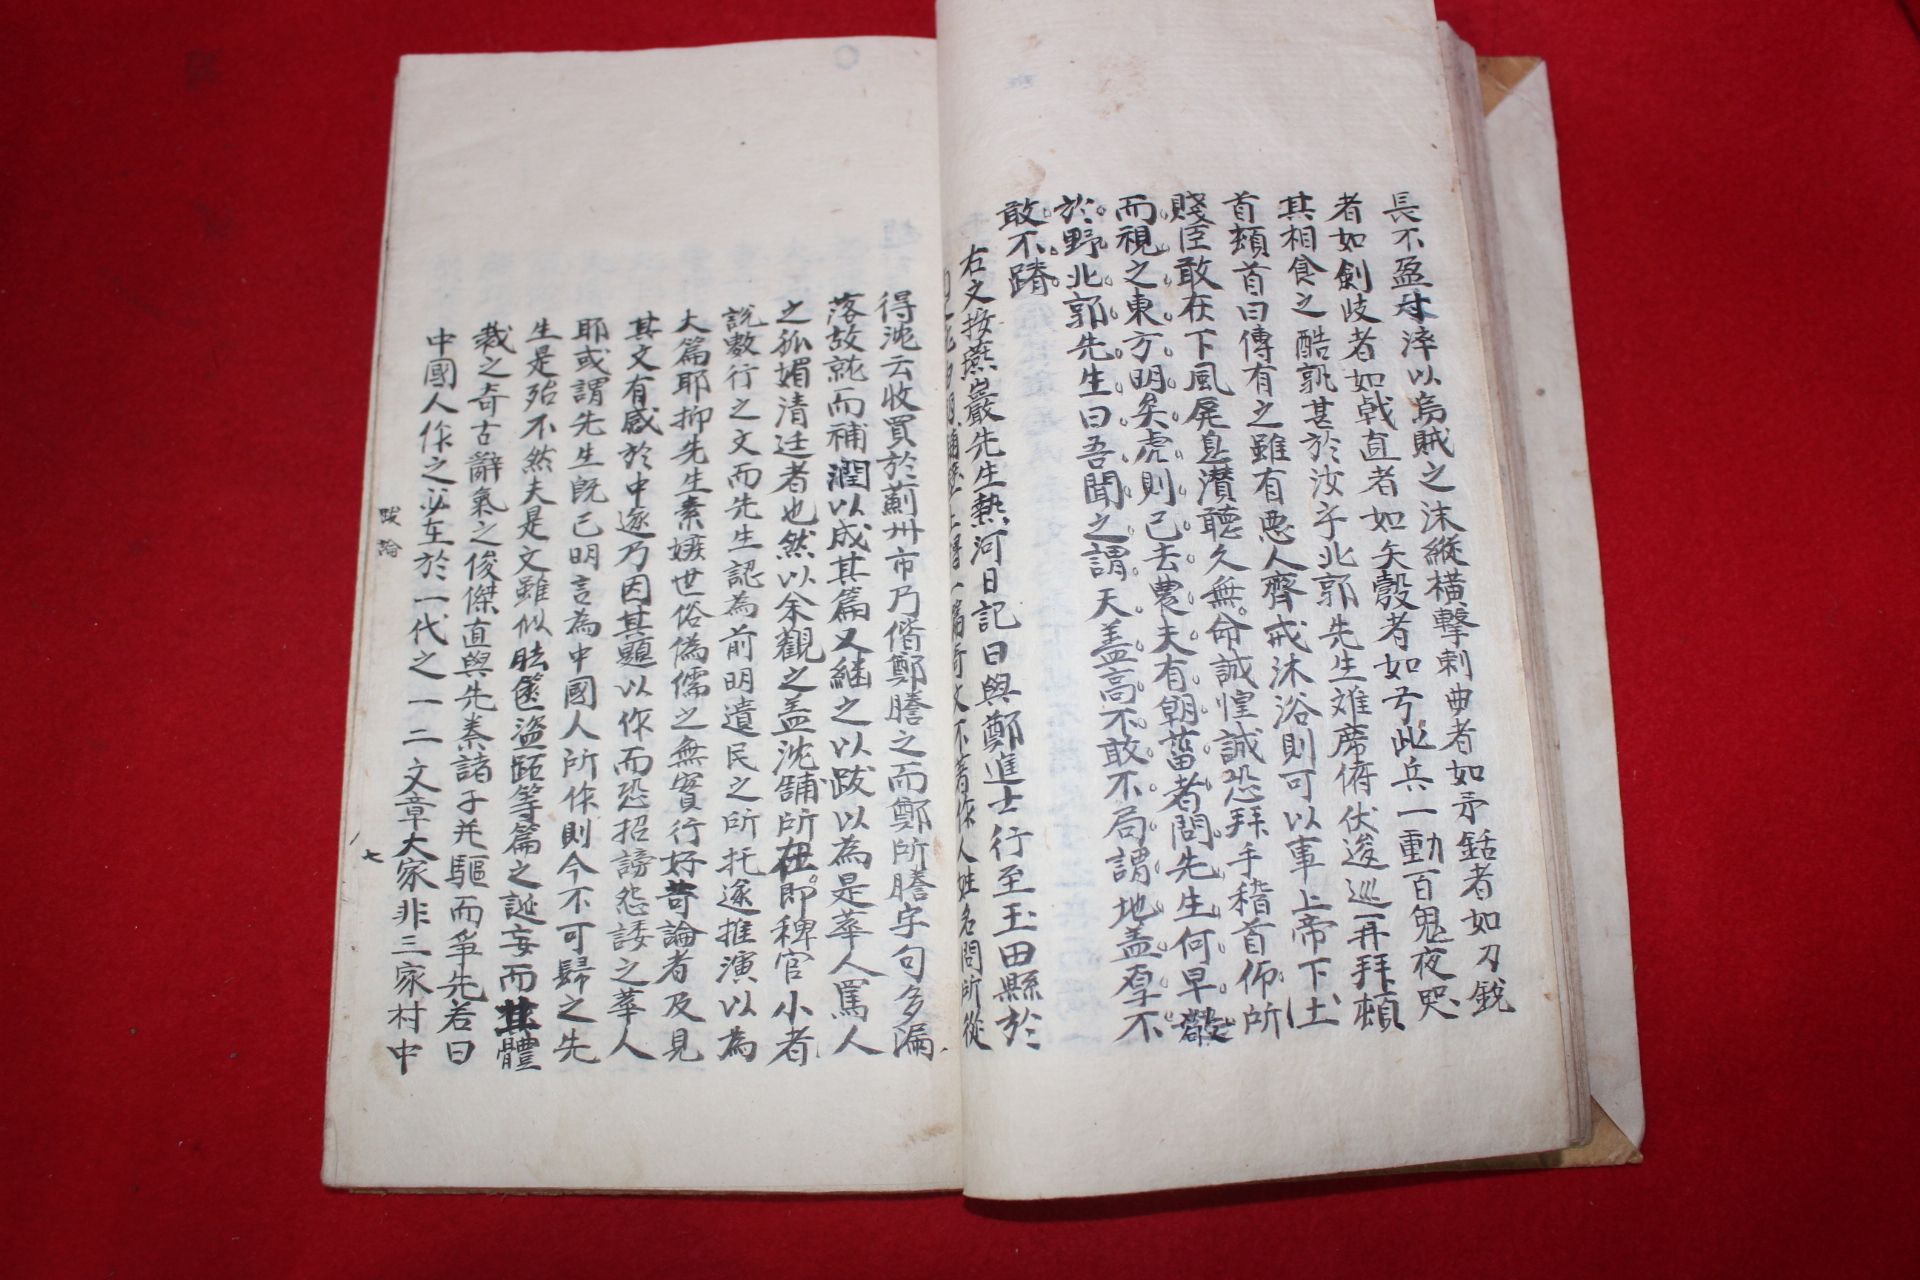 長不盈寸淬以烏賊之沫縱橫擊刺曲者如矛銛者如刀銳
者如劍歧者如戟直者如矢彀者如弓此兵一動百鬼夜哭
其相食之酷孰甚於汝乎北郭先生離席俯伏逡巡再拜頓
首頓首曰傳有之雖有惡人齊戒沐浴則可以事上帝下土
賤臣敢在下風屛息潛聽久無命誠惶誠恐拜手稽首仰所
而視之東方明矣虎則已去農夫有朝菑者問先生何早敬
於野北郭先生曰吾聞之謂天盖高不敢不局謂地盖厚不
敢不蹐
右文按燕巖先生熱河日記曰與鄭進士行至玉田縣於
上揭一篇奇文不著作人姓名問所從
得沈云收買於薊州市乃偕鄭謄之而鄭所謄字句多漏
落故就而補潤以成其篇又繼之以跋以為是華人罵人
之孤媚清廷者也然以余觀之盖沈舖所在即稗官小者
說數行之文而先生認為前明遺民之所托遂推演以為
大篇耶抑先生素嫉世俗偽儒之無實行好苛論者及見
其文有感於中遂乃因其題以作而恐招謗怨諉之華人
耶或謂先生旣已明言為中國人所作則今不可歸之先
生是殆不然夫是文雖似胠篋盜跖等篇之誕妄而其體
裁之奇古辭氣之俊傑直與先秦諸子並驅而爭先若曰
中國人作之必在於一代之一二文章大家非三家村中
跋論
七